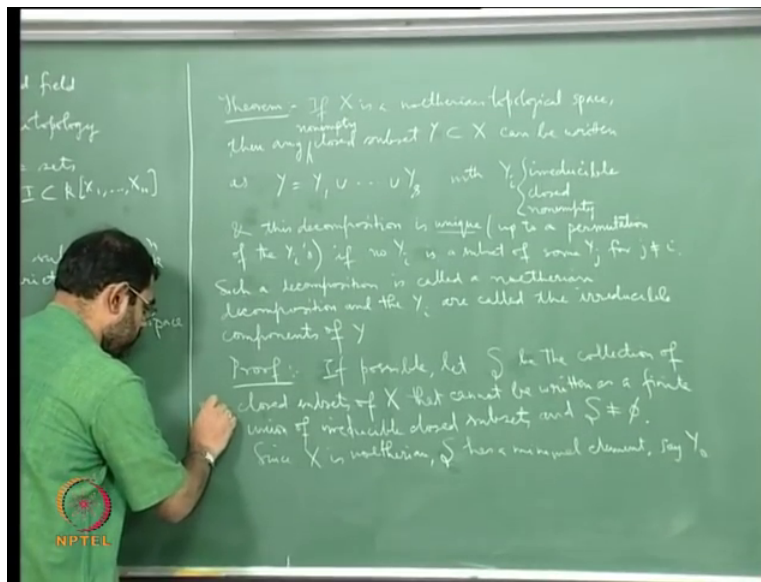 d field
topology
sets
I ⊂ k[X₁,...,Xₙ]
space
Theorem:- If X is a noetherian topological space,
then any nonempty closed subset Y ⊂ X can be written
as Y = Y₁ ∪ ··· ∪ Yₛ with Yᵢ { irreducible
closed
nonempty
& this decomposition is unique (up to a permutation
of the Yᵢ's) if no Yᵢ is a subset of some Yⱼ for j ≠ i.
Such a decomposition is called a noetherian
decomposition and the Yᵢ are called the irreducible
components of Y
Proof:- If possible, let S be the collection of
closed subsets of X that cannot be written as a finite
union of irreducible closed subsets and S ≠ ϕ.
Since X is noetherian, S has a minimal element, say Y₀
NPTEL